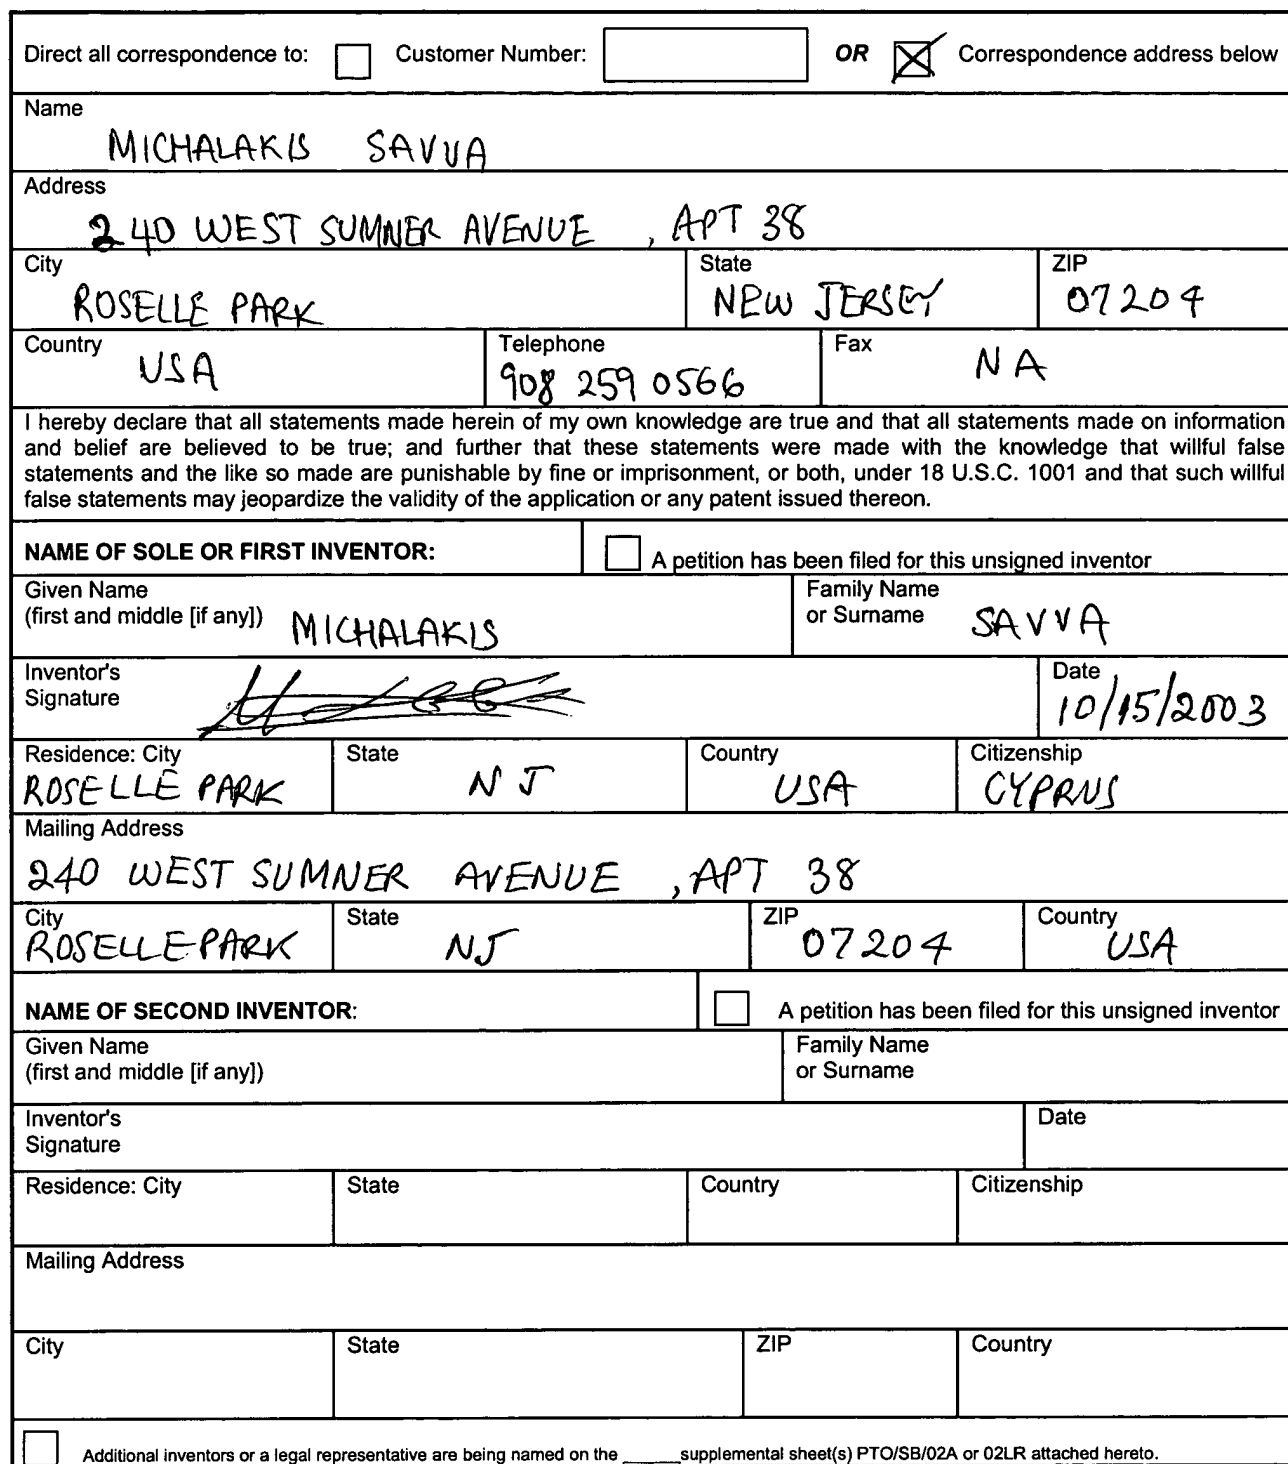 Direct all correspondence to: Customer Number: OR Correspondence address below
Name
MICHALAKIS SAVVA
Address
240 WEST SUMNER AVENUE , APT 38
City State ZIP
ROSELLE PARK NEW JERSEY 07204
Country Telephone Fax
USA 908 259 0566 NA
I hereby declare that all statements made herein of my own knowledge are true and that all statements made on information
and belief are believed to be true; and further that these statements were made with the knowledge that willful false
statements and the like so made are punishable by fine or imprisonment, or both, under 18 U.S.C. 1001 and that such willful
false statements may jeopardize the validity of the application or any patent issued thereon.
NAME OF SOLE OR FIRST INVENTOR: A petition has been filed for this unsigned inventor
Given Name Family Name
(first and middle [if any]) MICHALAKIS or Surname SAVVA
Inventor's Date
Signature 10/15/2003
Residence: City State Country Citizenship
ROSELLE PARK NJ USA CYPRUS
Mailing Address
240 WEST SUMNER AVENUE , APT 38
City State ZIP Country
ROSELLE PARK NJ 07204 USA
NAME OF SECOND INVENTOR: A petition has been filed for this unsigned inventor
Given Name Family Name
(first and middle [if any]) or Surname
Inventor's Date
Signature
Residence: City State Country Citizenship
Mailing Address
City State ZIP Country
Additional inventors or a legal representative are being named on the _____supplemental sheet(s) PTO/SB/02A or 02LR attached hereto.